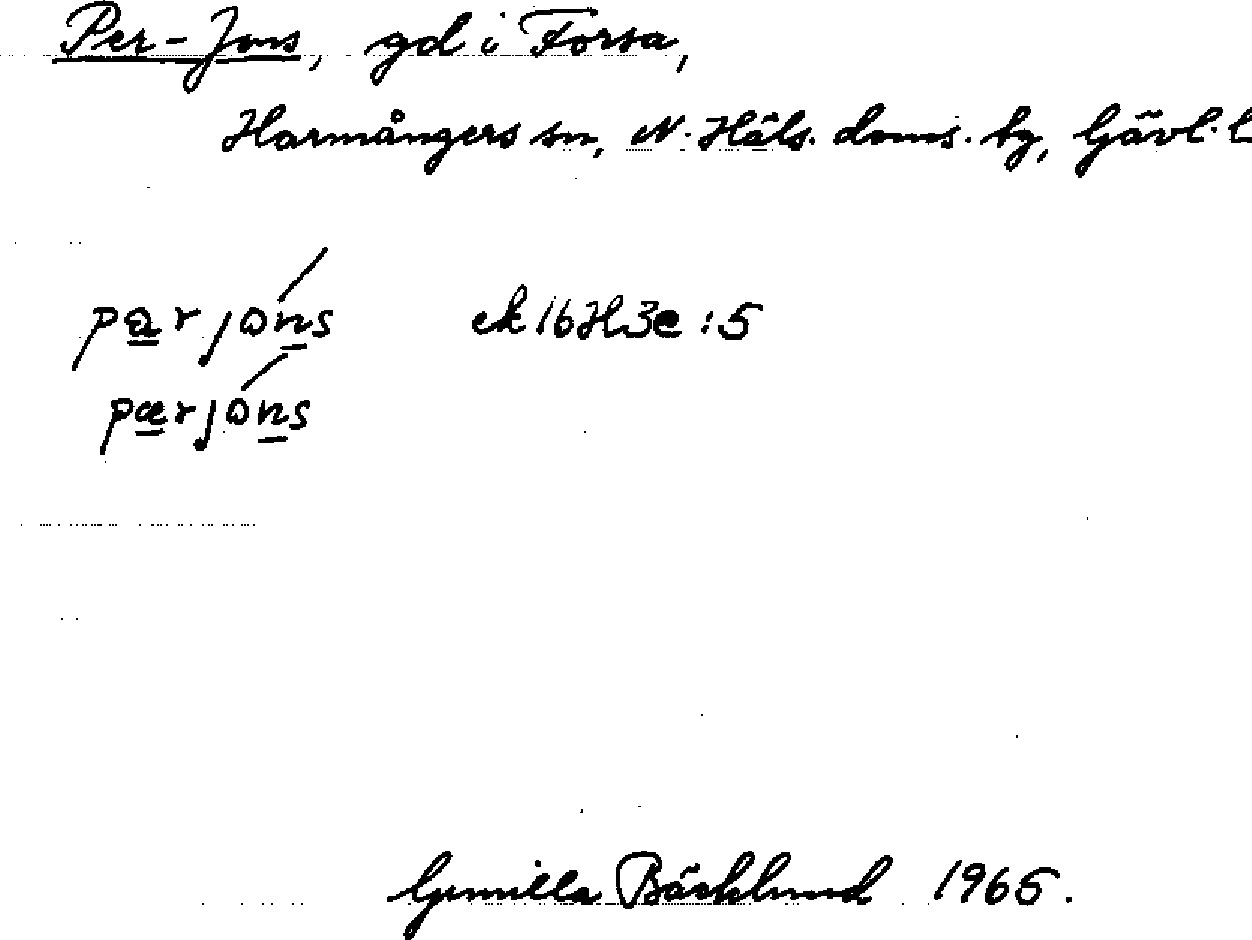 Per-Jons, gd i Forsa,
Harmångers sn, N. Häls. doms. hg, Gävl. l
pær jons ek 16H3e:5
pærjons
Gunilla Bäcklund 1965.